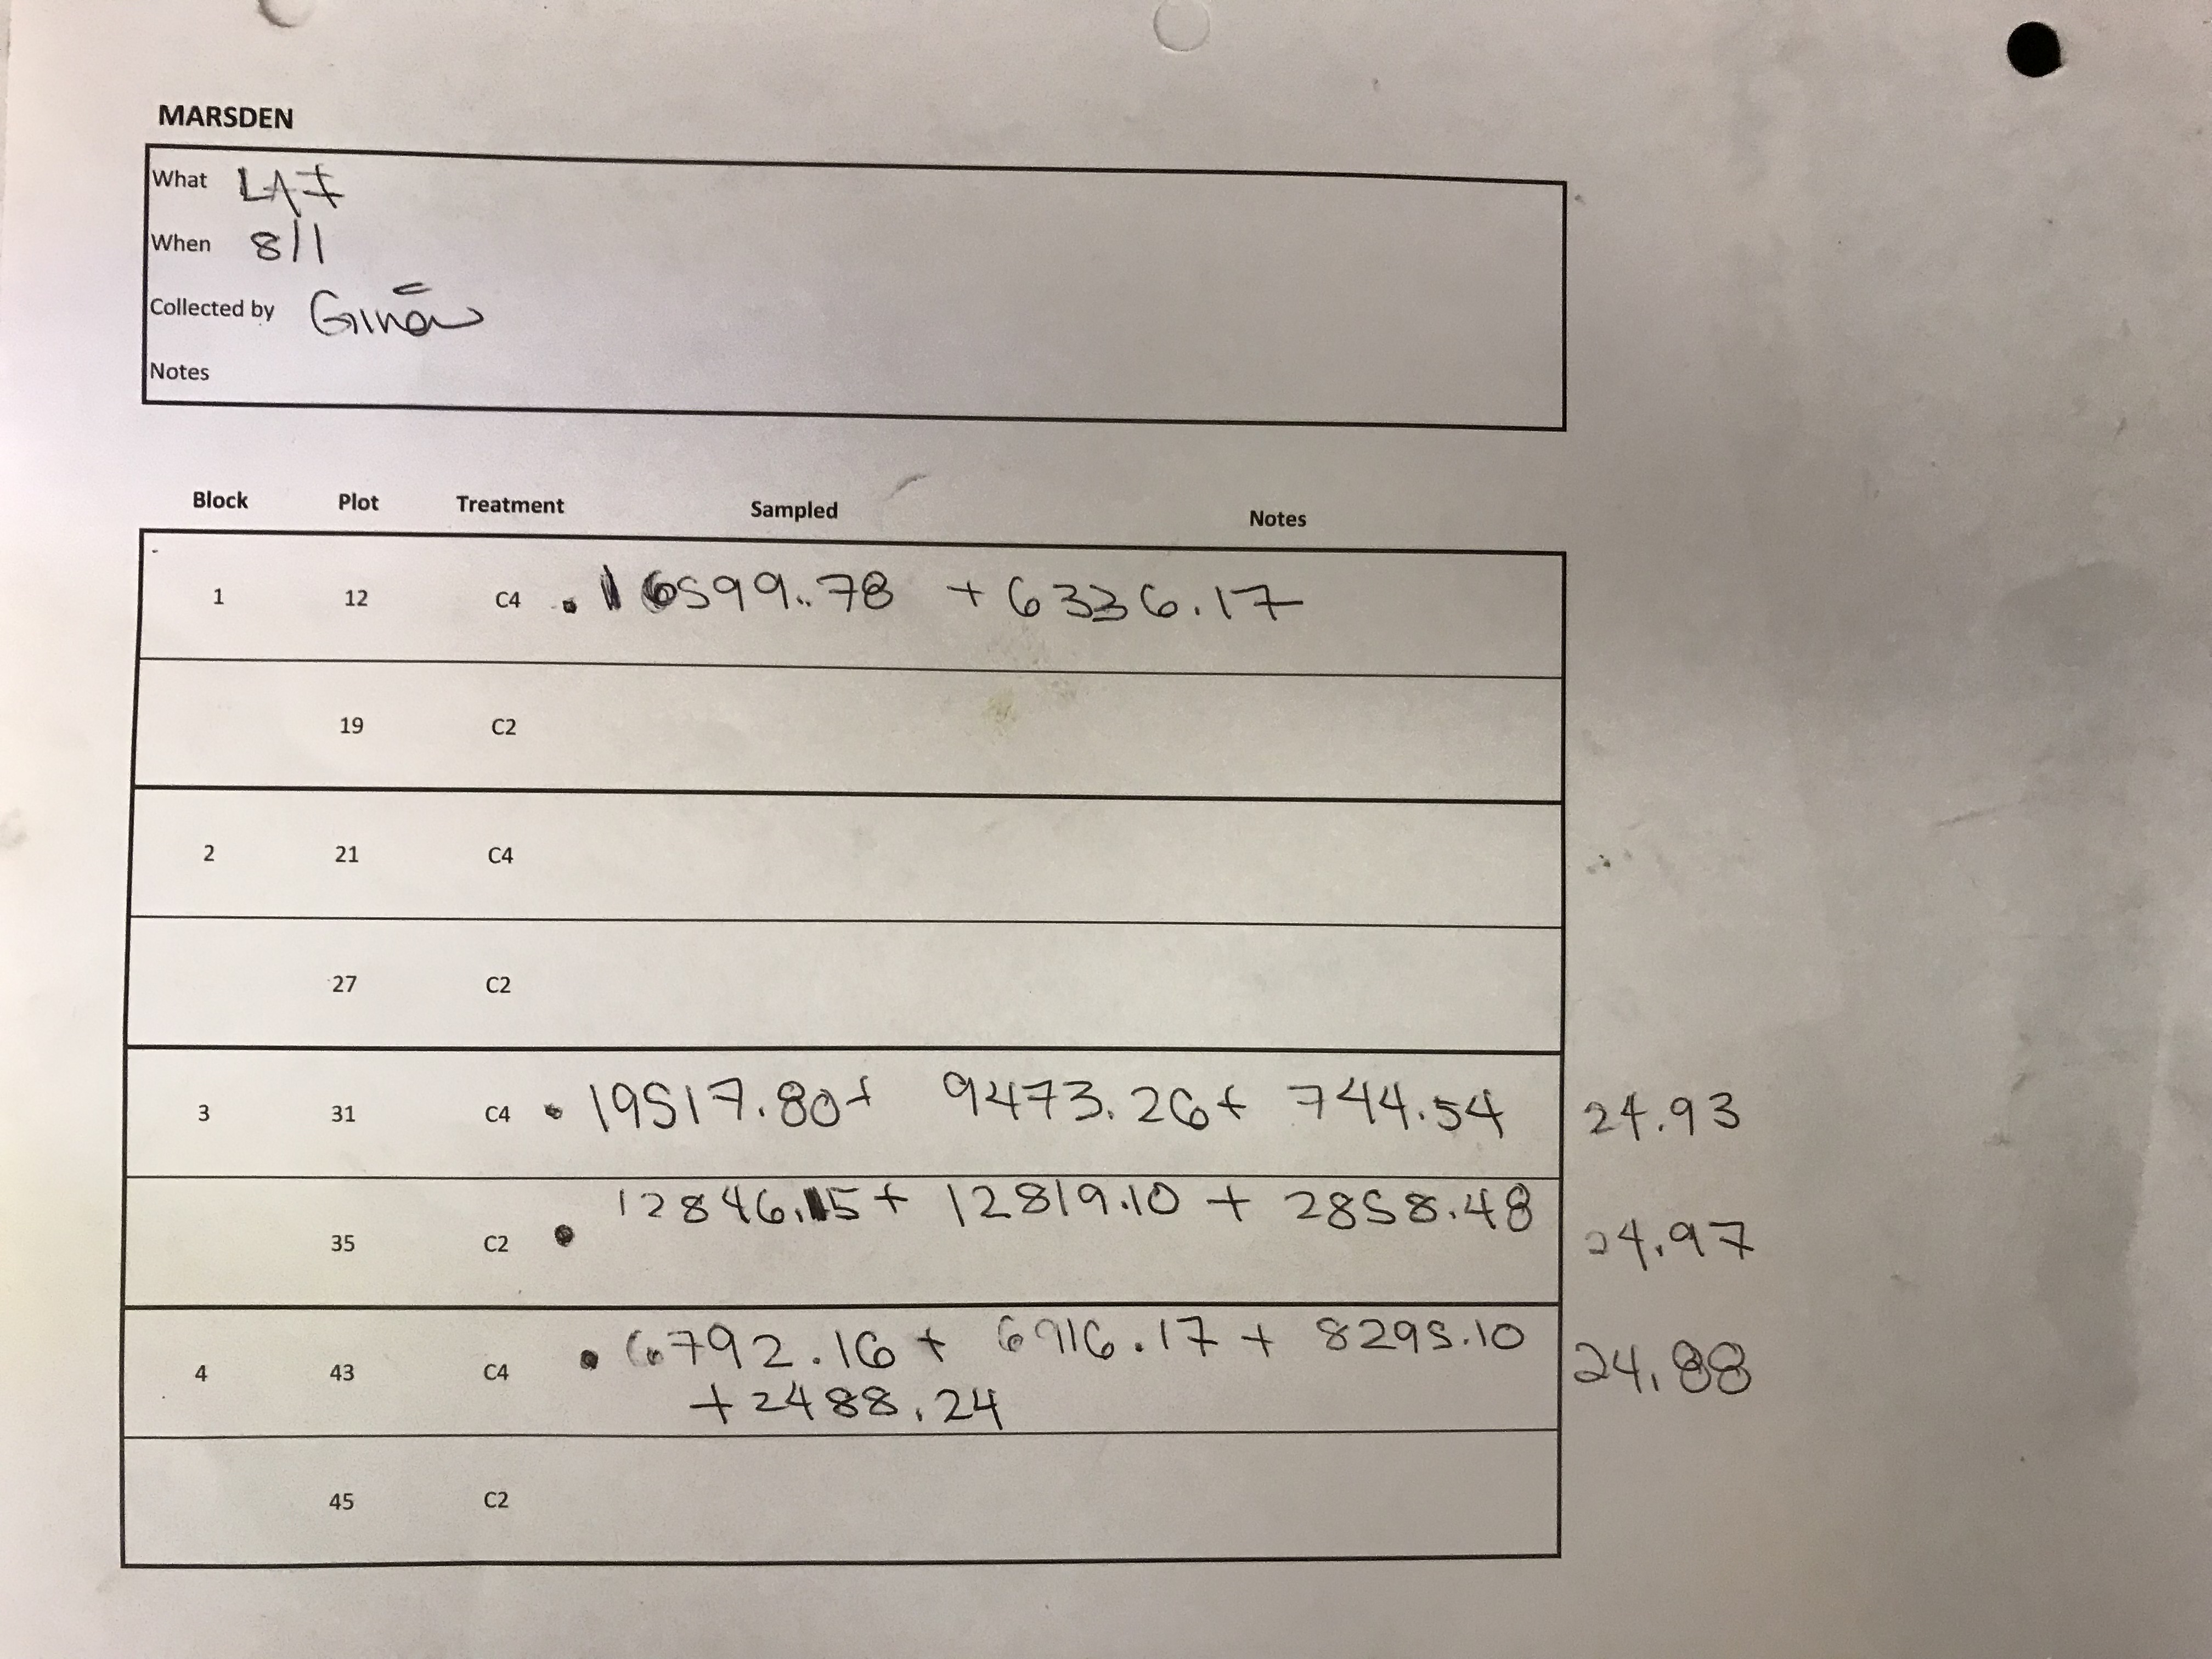 MARSDEN
What LAI
When 8/1
Collected by Gina
Notes
Block Plot Treatment Sampled Notes
1 12 C4 16599.78 + 6336.17
19 C2
2 21 C4
27 C2
3 31 C4 19517.80+ 9473.26+ 744.54 24.93
35 C2 12846.15+ 12819.10 + 2858.48 24.97
4 43 C4 6792.16 + 6916.17 + 8295.10 24.88
+2488.24
45 C2